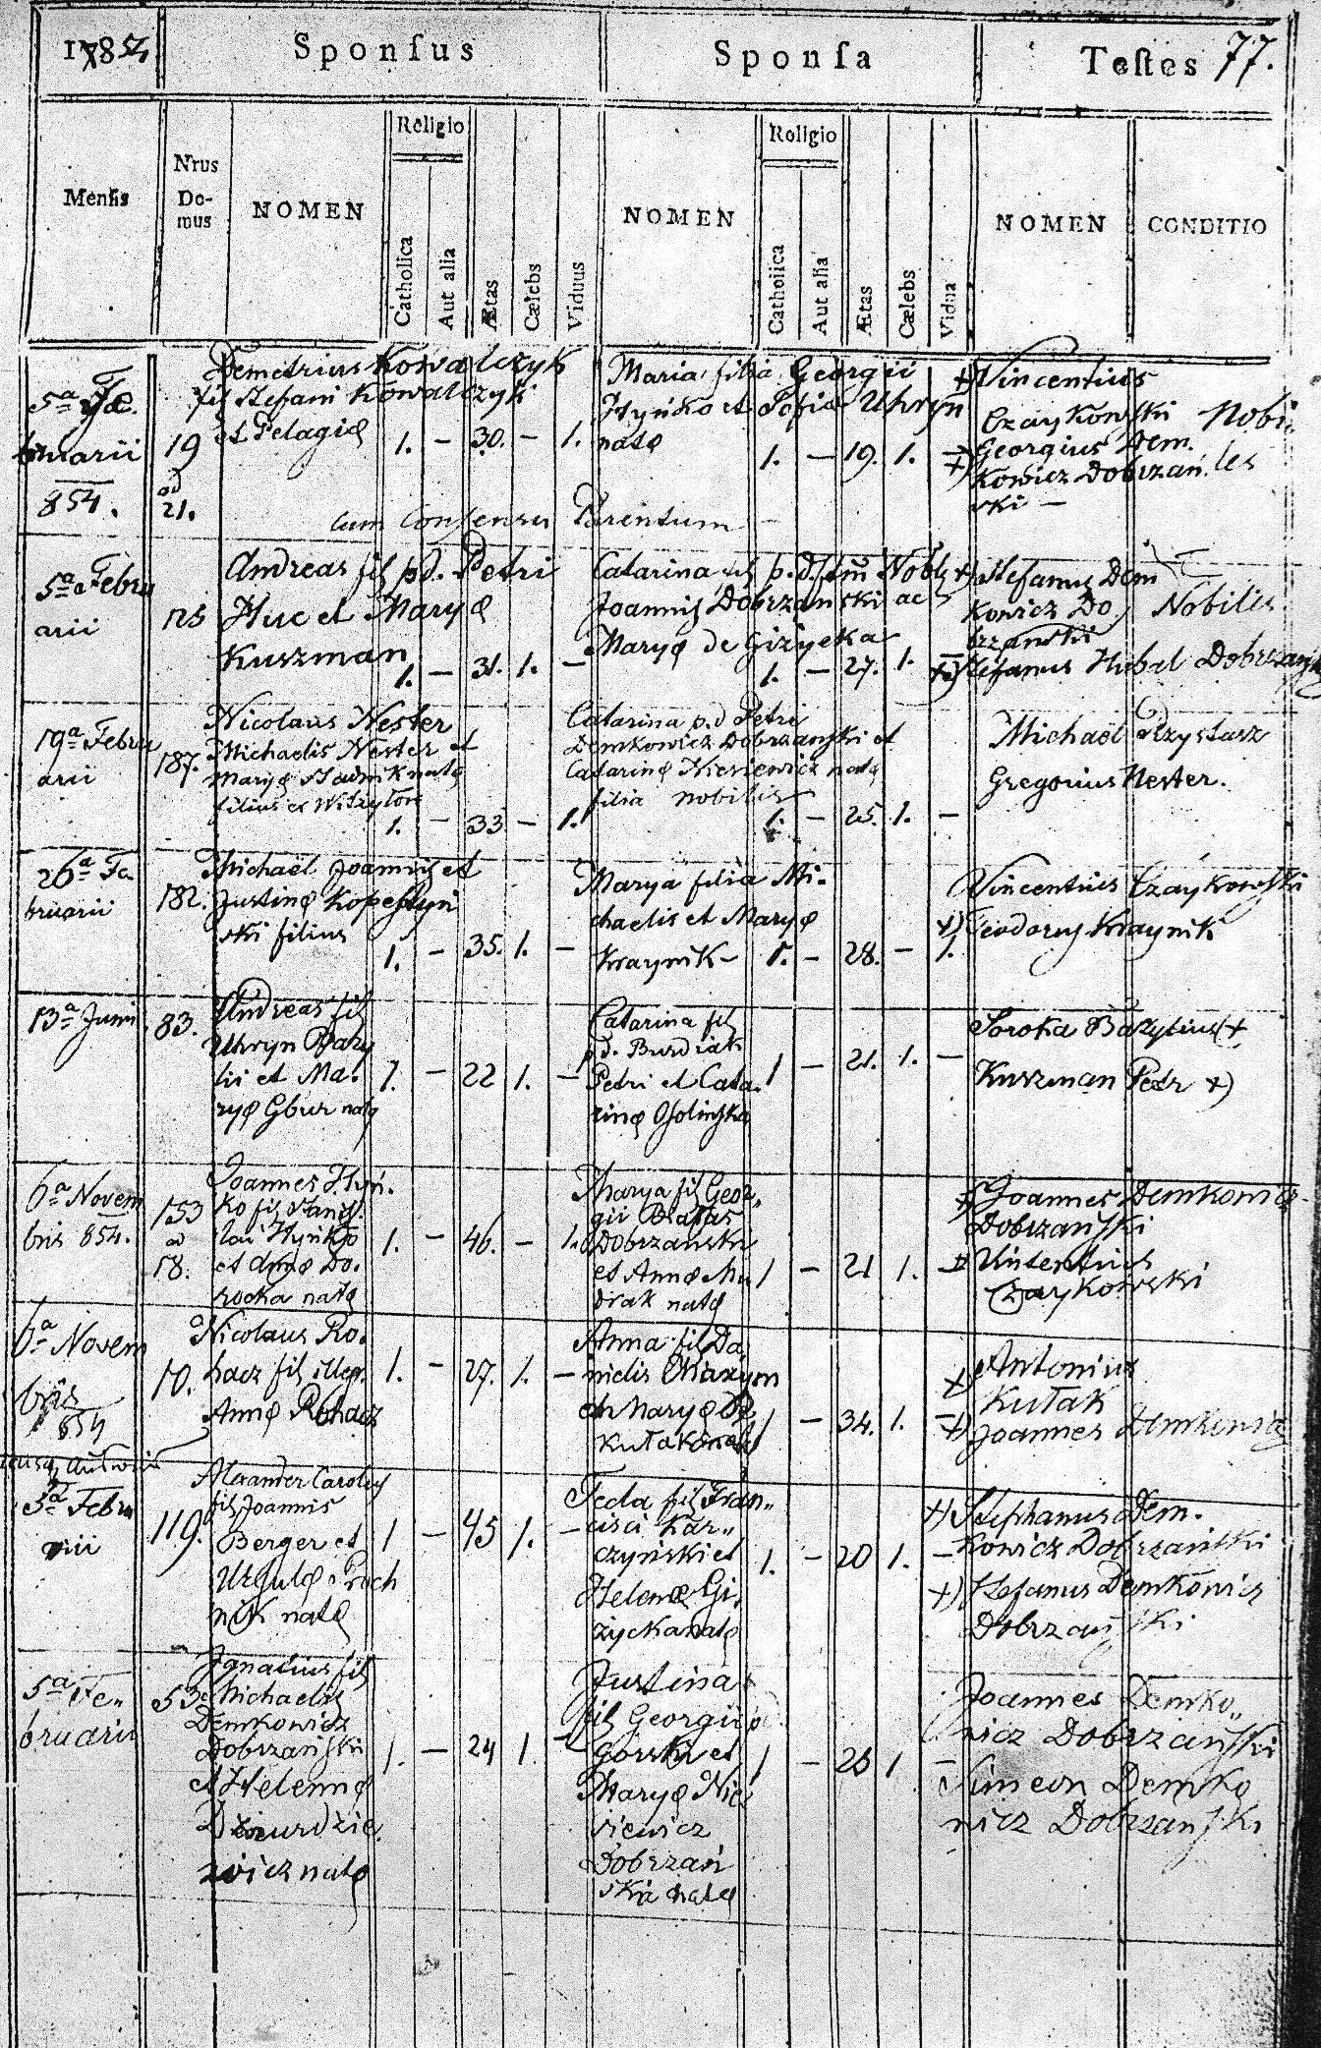 1785
Sponsus
Sponsa
Testes 77.
Mensis
Nrus Domus
NOMEN
Religio
Catholica
Aut alia
Ætas
Cælebs
Viduus
NOMEN
Religio
Catholica
Aut alia
Ætas
Cælebs
Vidua
NOMEN
CONDITIO
5a Fe
bruarii
854.
19
ad
21.
Demetrius Kowalczyk
fil Stefani Kowalczyki
et Pelagiæ
1. – 30. – 1.
Maria filia Georgii
Hyńko et Sofiæ Uhryn
natæ
1. – 19. 1. –
+) Vincentius
Czaykowski
+) Georgius Dem
kowicz Dobrzań
ski –
Nobi
les
cum Consensu Parentum –
5a Febru
arii
125
Andreas fil p.d. Petri
Huc et Maryæ
Kuszman
1. – 31. 1. –
Catarina fil p.d. Nobls
Joannis Dobrzanski ac
Maryæ de Giżycka
1. – 27. 1. –
+) Stefanus Dem
kowicz Do
brzanski
Nobiles
+) Stefanus Hubal Dobrzański
19a Febru
arii
187.
Nicolaus Nester
Michaelis Nester et
Maryæ Stadnik natæ
filius et
1. – 33 – 1.
Catarina p.d Petri
Demkowicz Dobrzanski et
Catarinæ Niesiewicz natæ
filia nobilis
1. – 25. 1. –
Michael Przystasz
Gregorius Nester.
26a Fe
bruarii
182.
Michaël Joannis et
Justinæ Kopestyń
ski filius
1. – 35. 1. –
Marya filia Mi
chaelis et Maryæ
Kraynik
1. – 28. – 1.
Vincentius Czaykowski
+) Teodorus Kraynik
13a Junii
83.
Andreas fil
Uhryn Bazy
lii et Ma
ryæ Gbur natæ
1. – 22 1. –
Catarina fil
p.d. Burdiak
Petri et Cata
rinæ Osolinska
1 – 21. 1. –
Soroka Bazylius +
Kuszman Petr +)
6a Novem
bris 854.
153
ad
18.
Joannes Hyń
ko fil Stanis
lai Hyńko
et Annæ Do
rocka natæ
1. – 46. – 1.
Marya fil Geor
gii Bałas
Dobrzanski
et Annæ Mu
drak natæ
1 – 21 1. –
+) Joannes Demkowicz
Dobrzański
+) Vincentius
Czaykowski
6a Novem
bris
854
10.
Nicolaus Ro
hacz fil illeg.
Annæ Rohacz
1. – 27. 1. –
Anna fil Da
nielis Maxym
et Maryæ
1 – 34. 1. –
+) Antonius
Kułak
+) Joannes Demkowicz
5a Febru
arii
119.
Alexander Carolus
fil Joannis
Berger et
Urzulæ Proch
nik natæ
1 – 45 1. –
Tecla fil Fran
cisci Kar
czyński et
Helenæ Gi
życka natæ
1. – 20 1. –
+) Stephanus Dem
kowicz Dobrzański
+) Stefanus Demkowicz
Dobrzański
5a Fe
bruarii
53
Ignatius fil
Michaelis
Demkowicz
Dobrzański
et Helennæ
natæ
1. – 24 1. –
Justina
fil Georgii
Górski et
Maryæ Nie
siewicz
Dobrzań
ska natæ
1 – 1 –
Joannes Demko
wicz Dobrzański
Simeon Demko
wicz Dobrzański